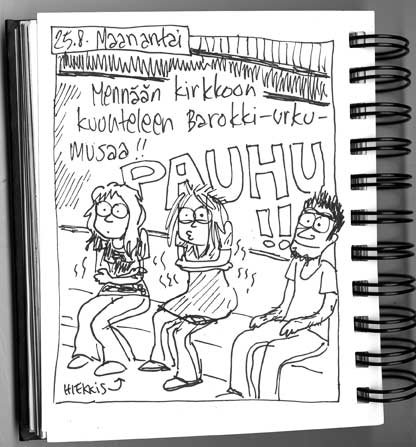 25.8. Maanantai
Mennään kirkkoon
kuunteleen Barokki-urku-
musaa!!
PAUHU
!!
HIEKKIS